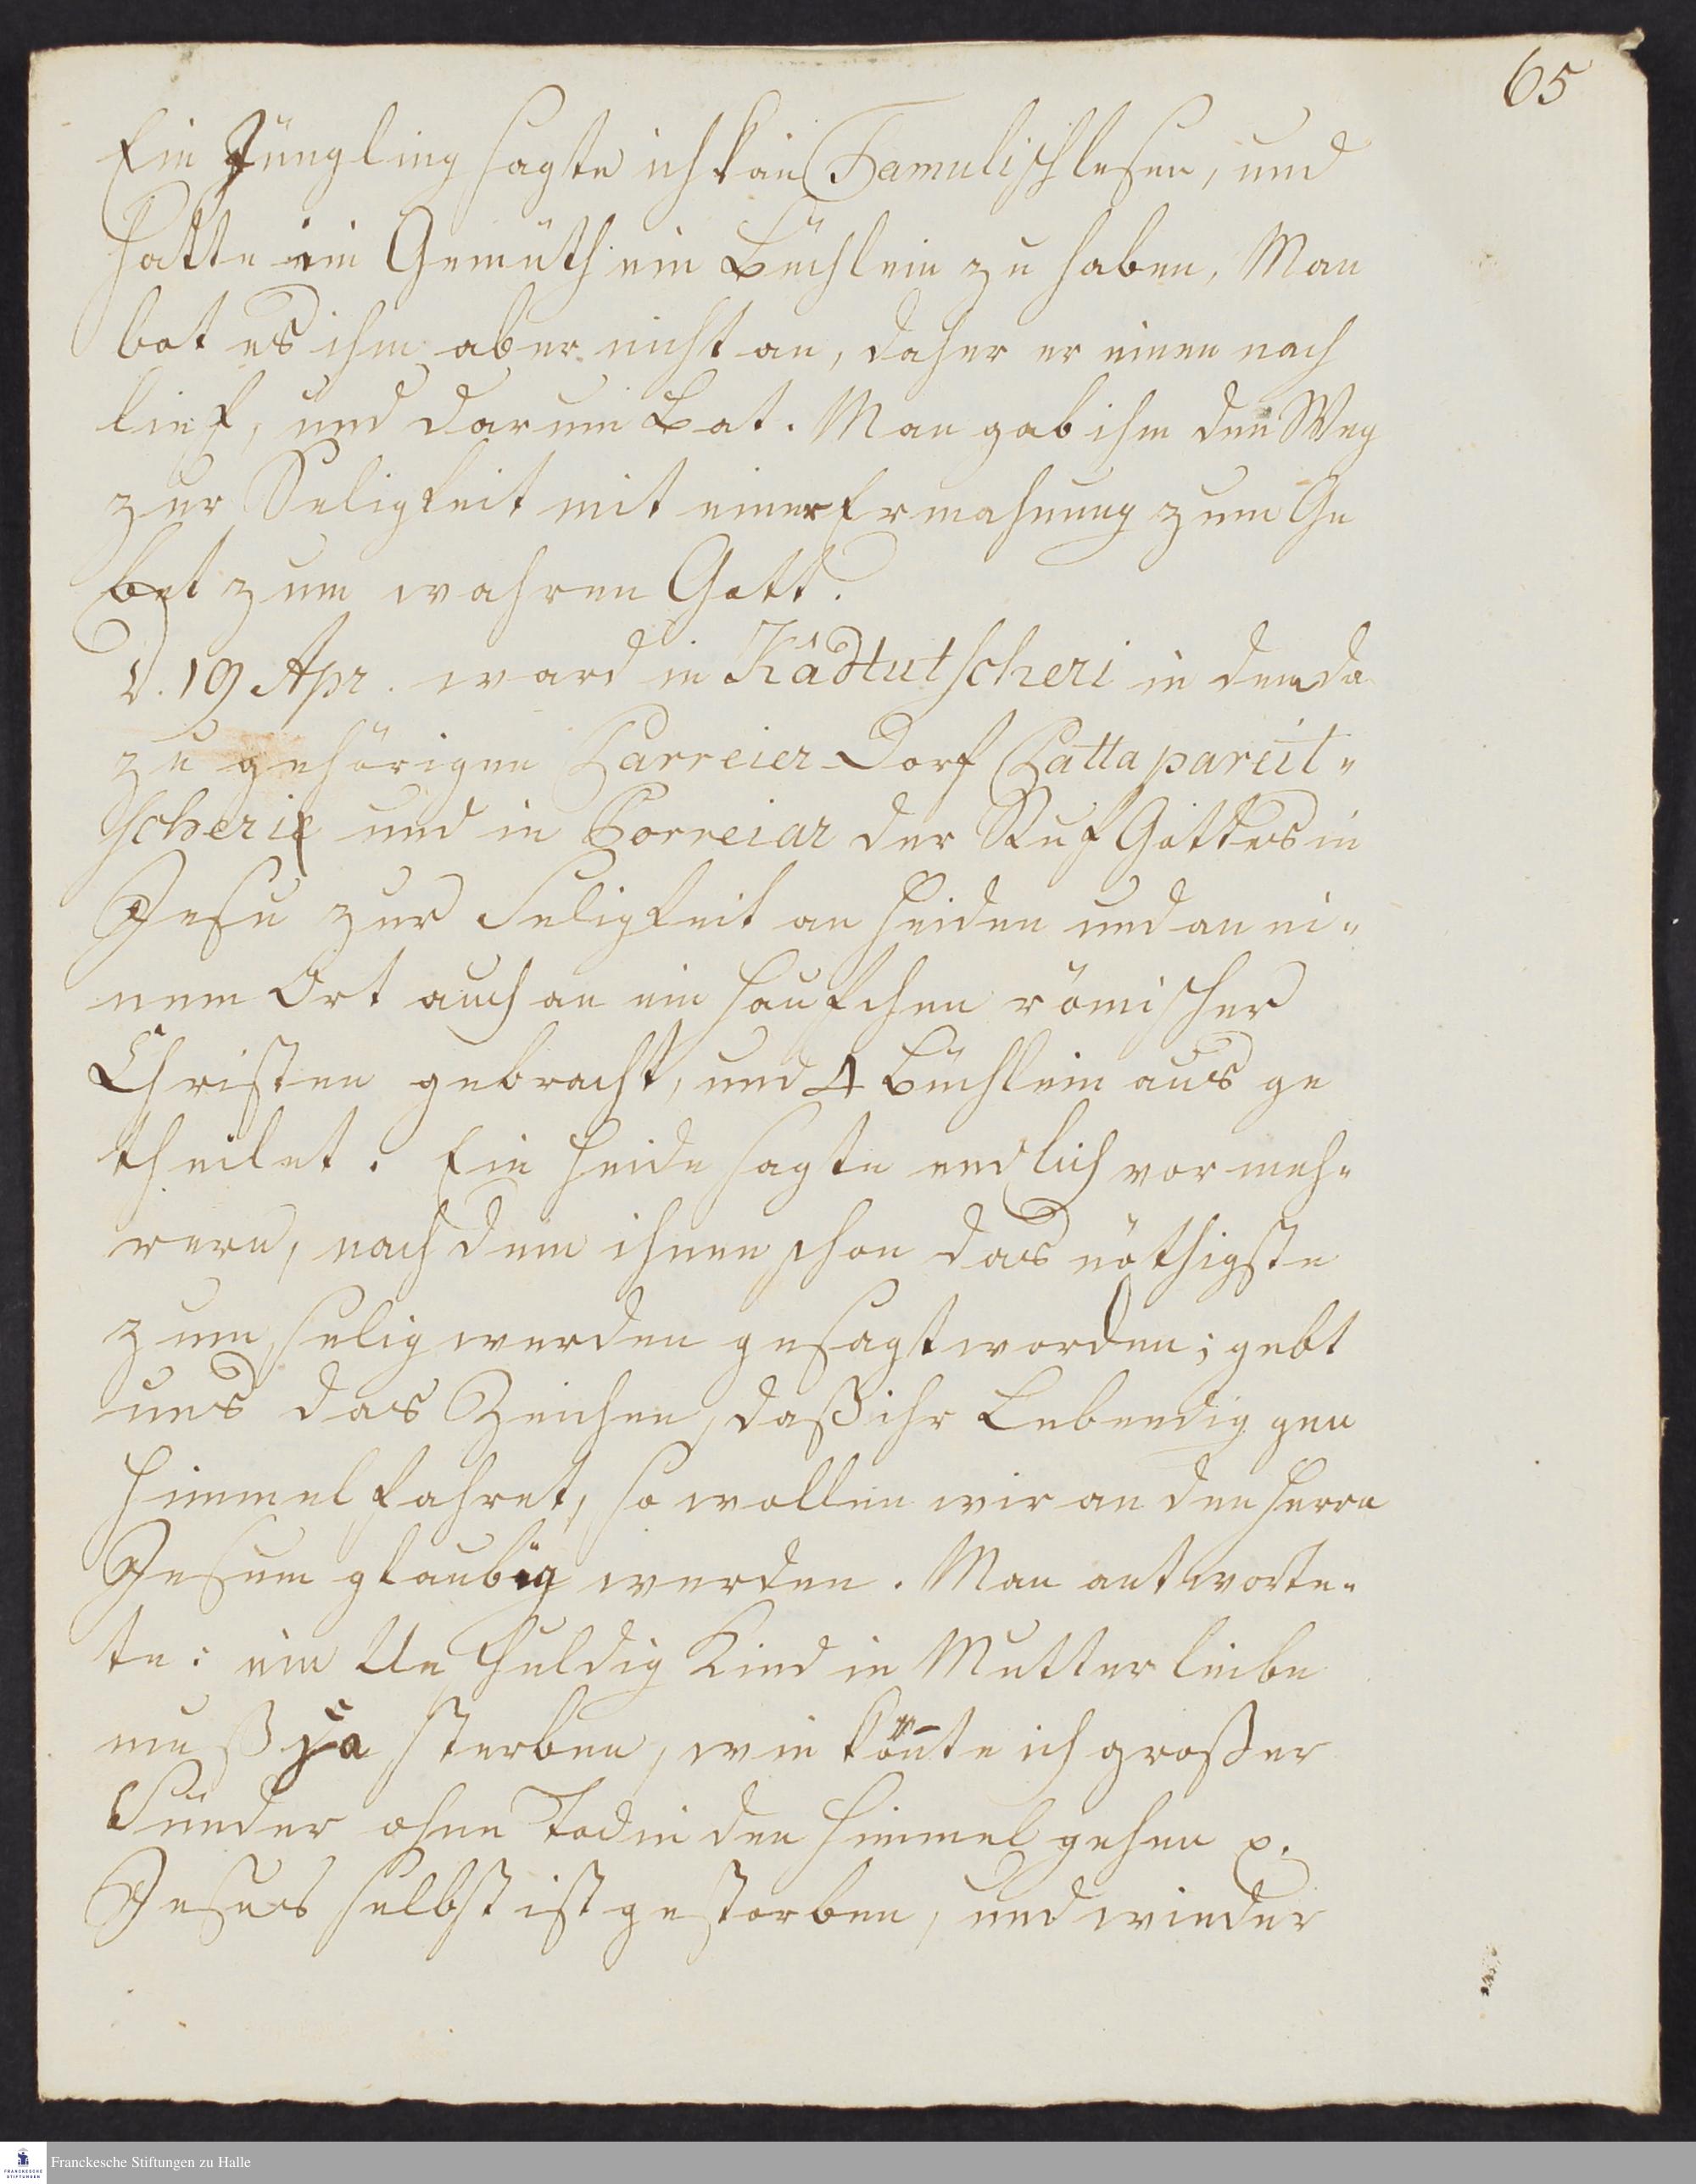 65
Ein Jüngling sagte ich kan Tamulisch lesen, und
hatte im Gemüth ein Büchlein zu haben, Man
bot es ihm aber nicht an, daher er einen nach
lief, und darum Bat. Man gab ihm den Weg
zur Seligkeit mit einer Ermahnung zum Ge
bet zum wahren Gott.
d. 19 Apr. ward in Kâdtutscheri in dem da
zu gehörigen Parreier-Dorf Pattapareit-
scheri und in Porreiar der Ruf Gottes in
Jesu zur Seligkeit an Heiden und an ei-
nem Ort auch an ein Häufchen römischer
Christen gebracht, und 4 Büchlein aus ge
theilet. Ein Heide sagte endlich vor meh-
rern, nach dem ihnen schon das nöthigste
zum selig werden gesagt worden; gebt
uns das Zeichen, daß ihr Lebendig gen
Himmel fahret, so wollen wir an den Herrn
Jesum glaubig werden. Man antworte-
te: ein Unschuldig Kind in Mutterleibe
muß ja sterben, wie könte ich großer
Sünder ohne Tod in den Himmel gehen p.
Jesus selbst ist gestorben, und wieder
Franckesche Stiftungen zu Halle